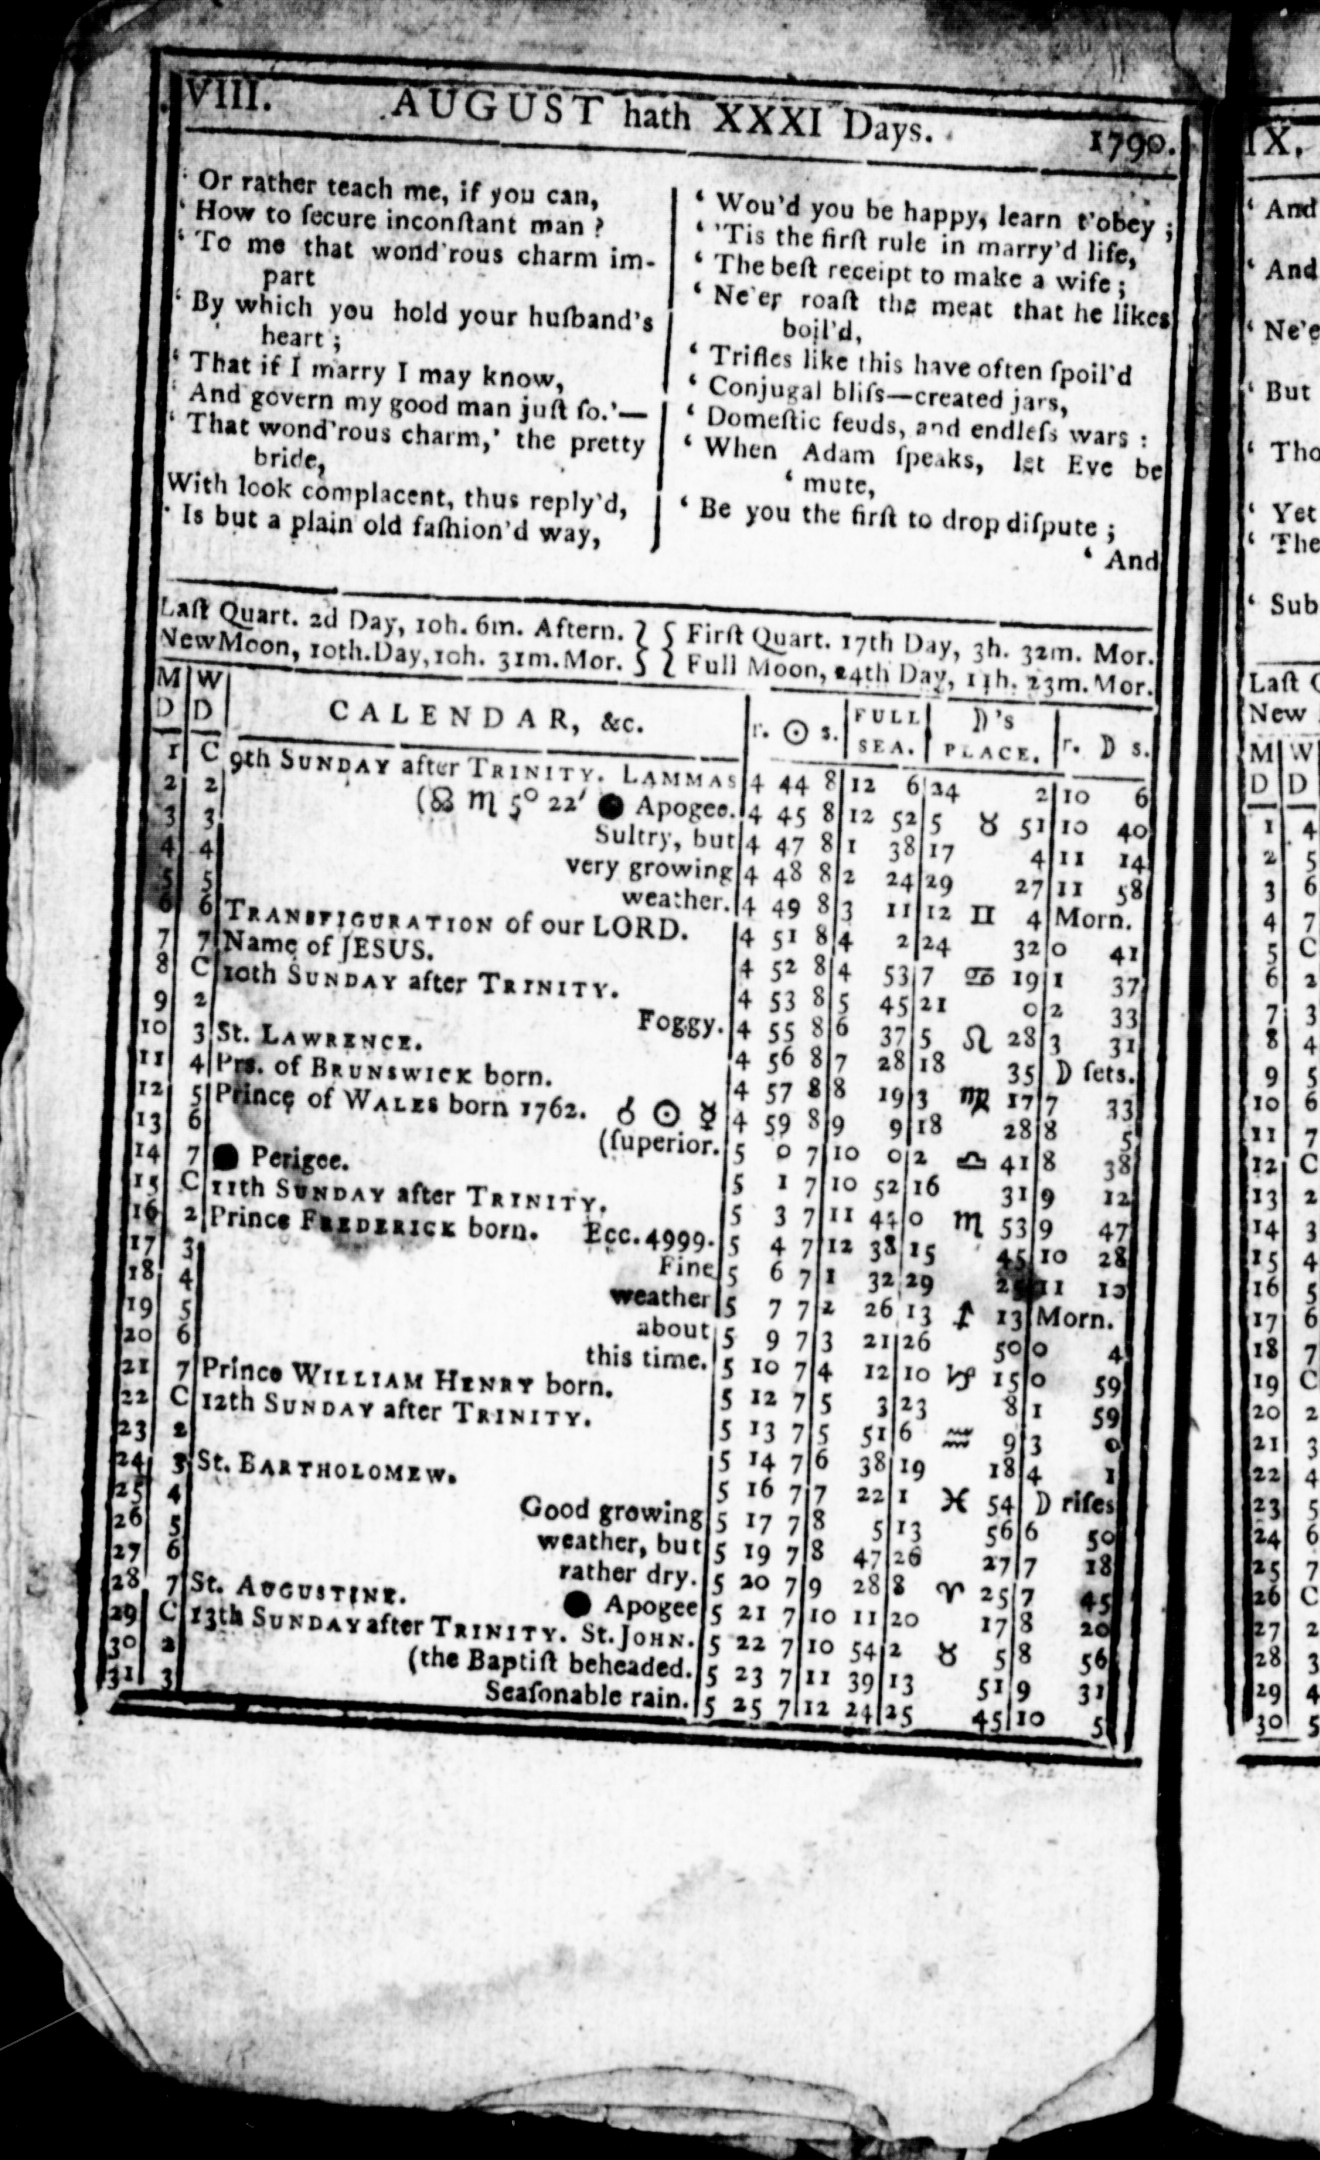 VIII. AUGUST hath XXXI Days. 1790.
‘ Or rather teach me, if you can,
‘ How to ſecure inconſtant man ?
‘ To me that wond'rous charm im-
part
‘ By which you hold your huſband's
heart ;
‘ That if I marry I may know,
‘ And govern my good man juſt ſo.’—
‘ That wond'rous charm,’ the pretty
bride,
With look complacent, thus reply'd,
‘ Is but a plain old faſhion'd way,
‘ Wou'd you be happy, learn t'obey ;
‘ 'Tis the firſt rule in marry'd life,
‘ The beſt receipt to make a wife ;
‘ Ne'er roaſt the meat that he likes
boil'd,
‘ Trifles like this have often ſpoil'd
‘ Conjugal bliſs—created jars,
‘ Domeſtic feuds, and endleſs wars :
‘ When Adam ſpeaks, let Eve be
‘ mute,
‘ Be you the firſt to drop diſpute ;
‘ And
Laſt Quart. 2d Day, 10h. 6m. Aftern. } { Firſt Quart. 17th Day, 3h. 32m. Mor.
New Moon, 10th. Day, 10h. 31m. Mor. } { Full Moon, 24th Day, 11h. 23m. Mor.
M D W D CALENDAR, &c. r. ☉ s. FULL SEA. ☽'s PLACE. r. ☽ s.
1 C 9th SUNDAY after TRINITY. LAMMAS 4 44 8 12 6 24 2 10 6
2 2 (☊ ♏ 5° 22′ ● Apogee. 4 45 8 12 52 5 ♉ 51 10 40
3 3 Sultry, but 4 47 8 1 38 17 4 11 14
4 4 very growing 4 48 8 2 24 29 27 11 58
5 5 weather. 4 49 8 3 11 12 ♊ 4 Morn.
6 6 TRANSFIGURATION of our LORD. 4 51 8 4 2 24 32 0 41
7 7 Name of JESUS. 4 52 8 4 53 7 ♋ 19 1 37
8 C 10th SUNDAY after TRINITY. 4 53 8 5 45 21 0 2 33
9 2 Foggy. 4 55 8 6 37 5 ♌ 28 3 31
10 3 St. LAWRENCE. 4 56 8 7 28 18 35 ☽ ſets.
11 4 Prs. of BRUNSWICK born. 4 57 8 8 19 3 ♍ 17 7 33
12 5 Prince of WALES born 1762. ☌ ☉ ☿ 4 59 8 9 9 18 28 8 5
13 6 (ſuperior. 5 0 7 10 0 2 ♎ 41 8 38
14 7 ● Perigee. 5 1 7 10 52 16 31 9 12
15 C 11th SUNDAY after TRINITY. 5 3 7 11 44 0 ♏ 53 9 47
16 2 Prince FREDERICK born. Ecc. 4999. 5 4 7 12 38 15 45 10 28
17 3 Fine 5 6 7 1 32 29 11 13
18 4 weather 5 7 7 2 26 13 ♐ 13 Morn.
19 5 about 5 9 7 3 21 26 50 0 4
20 6 this time. 5 10 7 4 12 10 ♑ 15 0 59
21 7 Prince WILLIAM HENRY born. 5 12 7 5 3 23 8 1 59
22 C 12th SUNDAY after TRINITY. 5 13 7 5 51 6 ♒ 9 3 0
23 2 5 14 7 6 38 19 18 4 1
24 3 St. BARTHOLOMEW. 5 16 7 7 22 1 ♓ 54 ☽ riſes
25 4 Good growing 5 17 7 8 5 13 56 6 50
26 5 weather, but 5 19 7 8 47 26 27 7 18
27 6 rather dry. 5 20 7 9 28 8 ♈ 25 7 45
28 7 St. AUGUSTINE. ● Apogee 5 21 7 10 11 20 17 8 20
29 C 13th SUNDAY after TRINITY. St. JOHN. 5 22 7 10 54 2 ♉ 5 8 56
30 2 (the Baptiſt beheaded. 5 23 7 11 39 13 51 9 31
31 3 Seaſonable rain. 5 25 7 12 24 25 45 10 5
IX.
‘ And
‘ And
‘ Ne'e
‘ But
‘ Tho
‘ Yet
‘ The
‘ Sub
Laſt
New
M W
D D
1 4
2 5
3 6
4 7
5 C
6 2
7 3
8 4
9 5
10 6
11 7
12 C
13 2
14 3
15 4
16 5
17 6
18 7
19 C
20 2
21 3
22 4
23 5
24 6
25 7
26 C
27 2
28 3
29 4
30 5